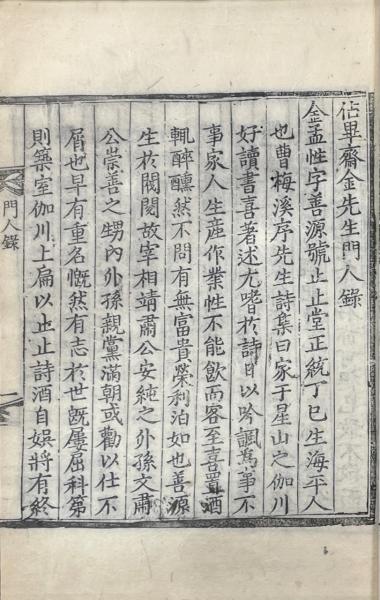 佔畢齋金先生門人錄
金孟性字善源號止止堂正統丁巳生海平人
也曹梅溪序先生詩集曰家于星山之伽川
好讀書喜著述尤嗜於詩日以吟諷爲事不
事家人生産作業性不能飮而客至喜置酒
輒醉醺然不問有無富貴榮利泊如也善源
生於閥閱故宰相靖肅公安純之外孫文肅
公崇善之甥內外孫親黨滿朝或勸以仕不
屑也早有重名慨然有志於世旣屢屈科第
則築室伽川上扁以止止詩酒自娛將有終
門人錄